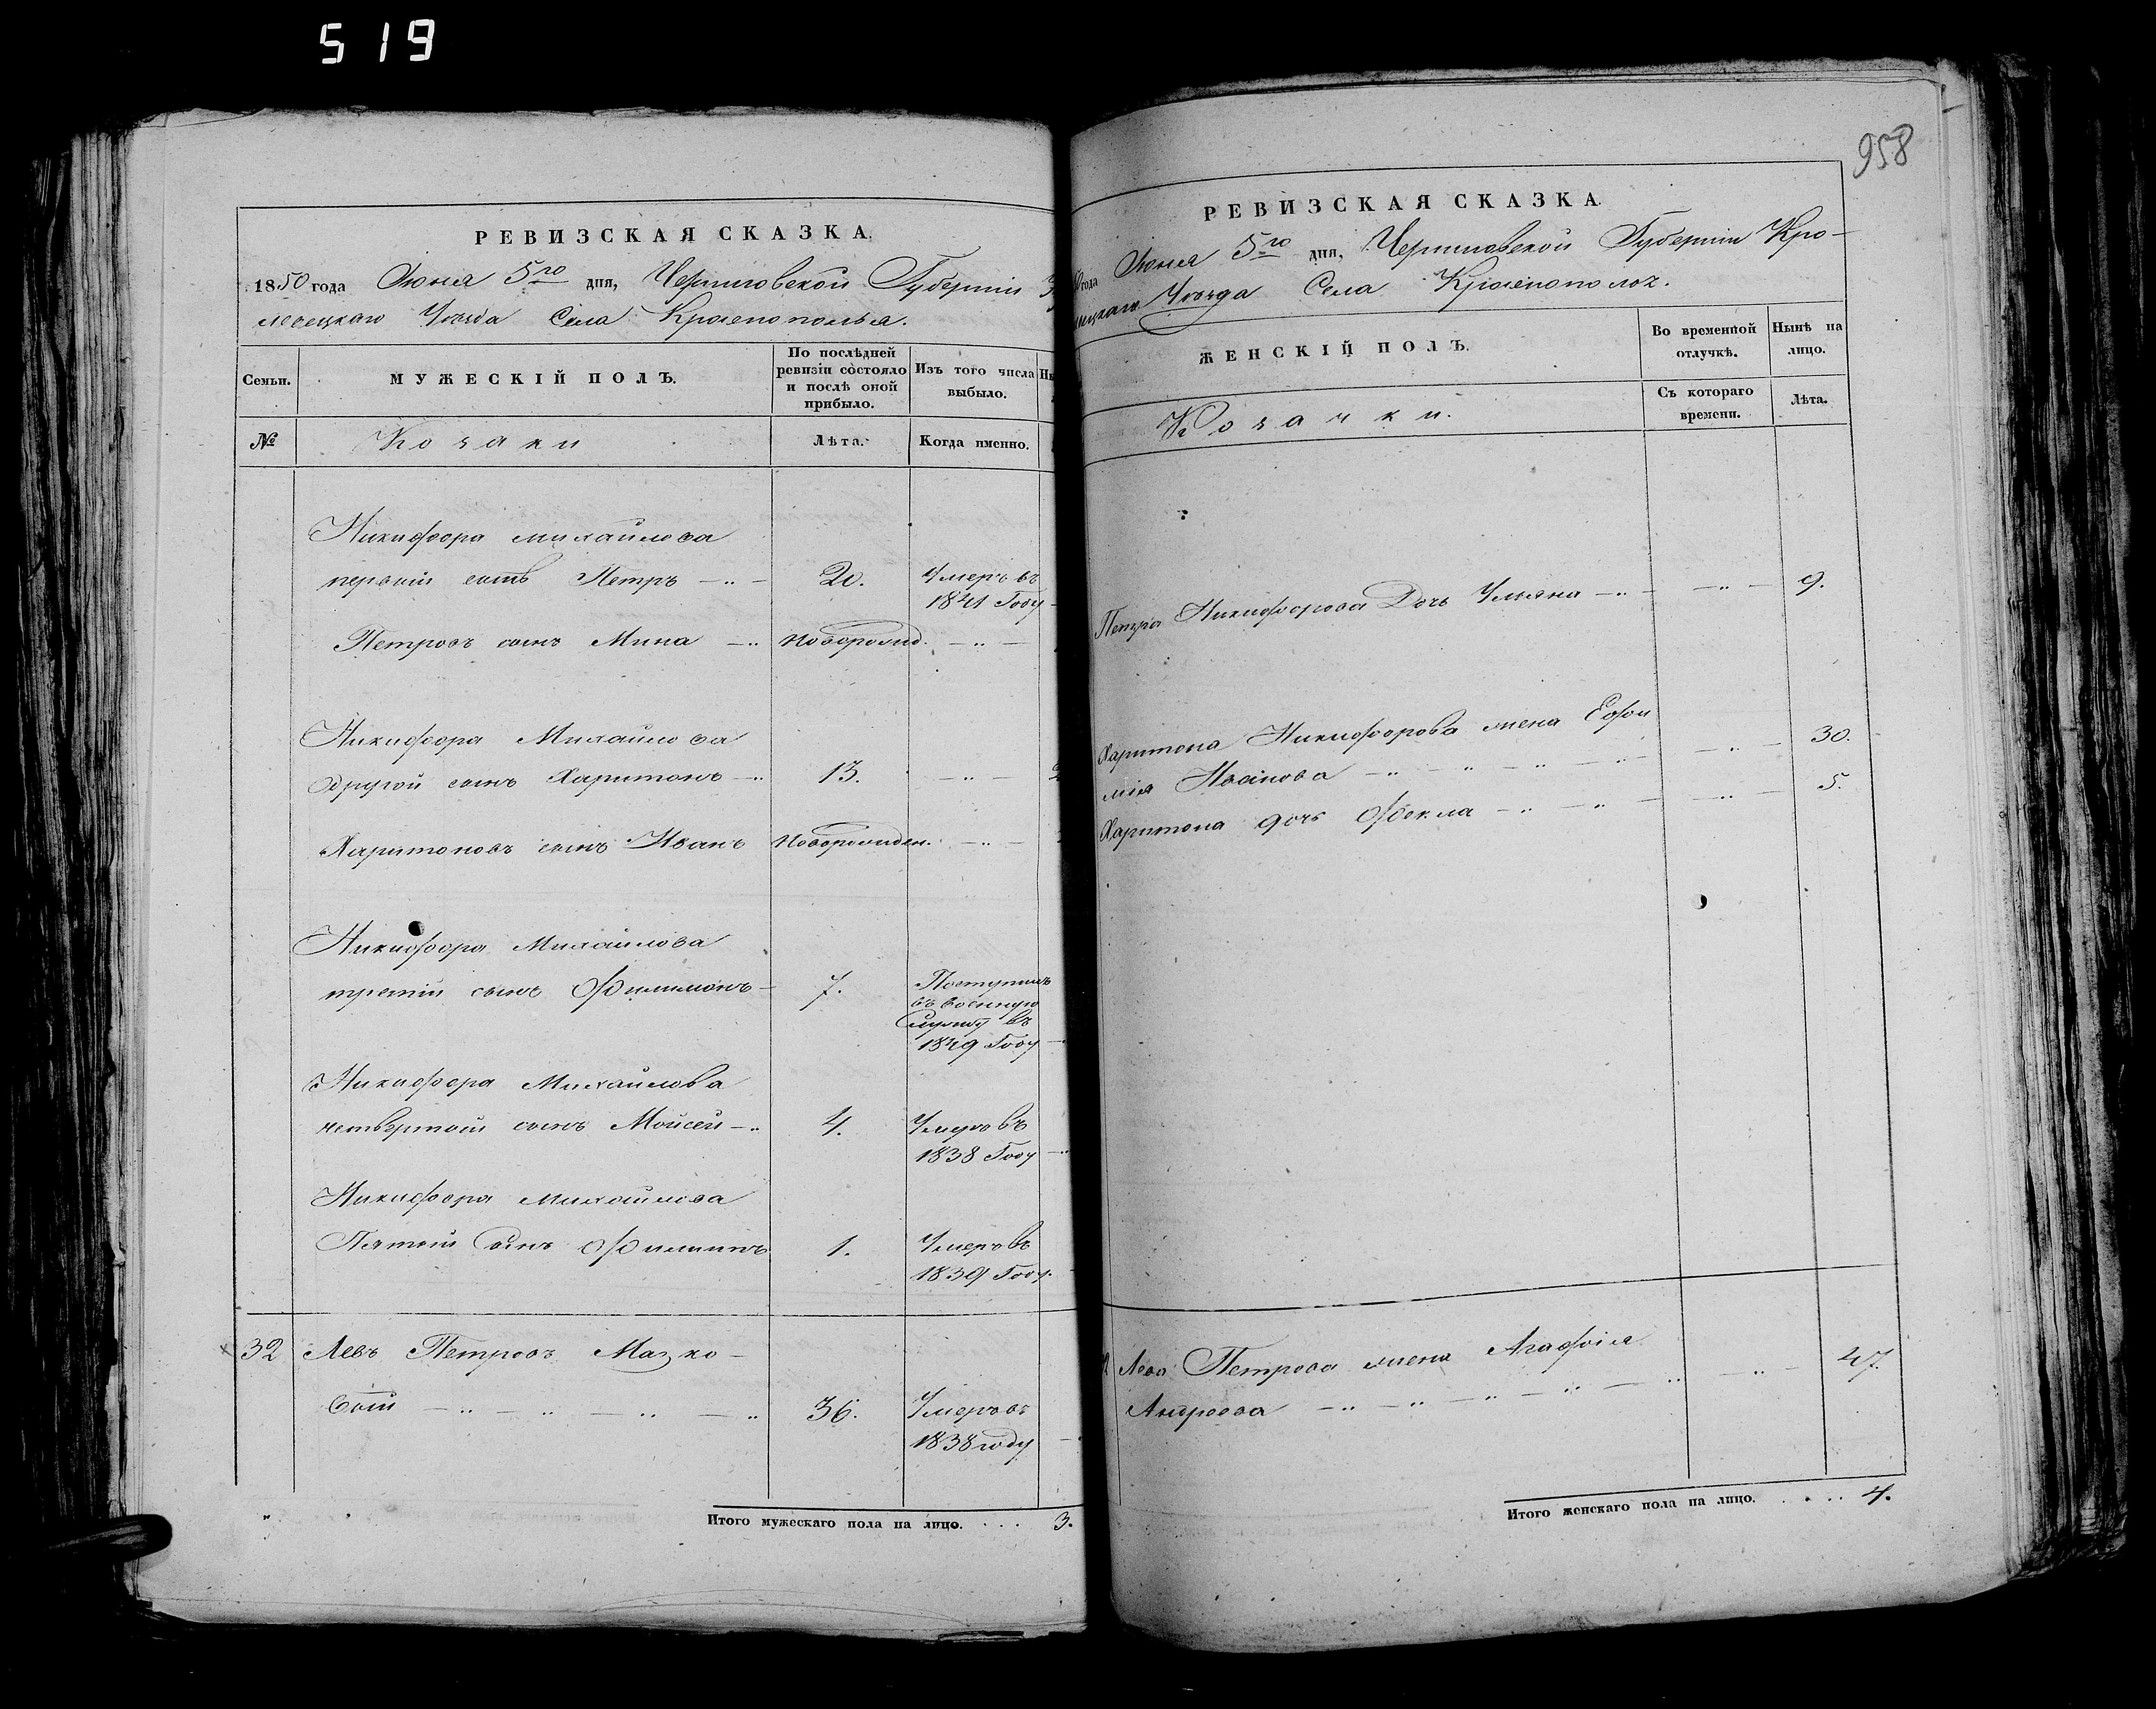 519
РЕВИЗСКАЯ СКАЗКА.
1850 года Июня 5го дня, Черниговской Губерніи
левецкаго Уѣзда Села
Семьи.
МУЖЕСКІЙ ПОЛЪ.
По послѣдней ревизіи состояло и послѣ оной прибыло.
Изъ того числа выбыло.
№
Козаки
Лѣта.
Когда именно.
Никифора Михайлова
первый сынъ Петръ 20. Умеръ въ
1841 Году
Петровъ сынъ Мина Новорожд.
Никифора Михайлова
другой сынъ Харитонъ 13.
Харитоновъ сынъ Иванъ Новорожден.
Никифора Михайлова
третій сынъ Филимонъ 7. Поступилъ
въ военную
службу въ
1849 Году
Никифора Михайлова
четвертый сынъ Мойсей 4. Умеръ въ
1838 Году
Никифора Михайлова
Пятый Сынъ Филиппъ 1. Умеръ въ
1839 Году.
32 Левъ Петровъ
36. Умеръ въ
1838 году
Итого мужескаго пола на лицо. . . . 3.
958
РЕВИЗСКАЯ СКАЗКА.
года Июня 5го дня, Черниговской Губерніи Кро-
Уѣзда Села
ЖЕНСКІЙ ПОЛЪ.
Во временной отлучкѣ.
Нынѣ на лицо.
Козачки.
Съ котораго времени.
Лѣта.
Петра Никифорова Дочь Ульяна 9.
Харитона Никифорова жена Евфи
мія Иванова 30.
Харитона дочь Фекла 5.
Льва Петрова жена Агафія
Андреева 47.
Итого женскаго пола на лицо. . . . . 4.